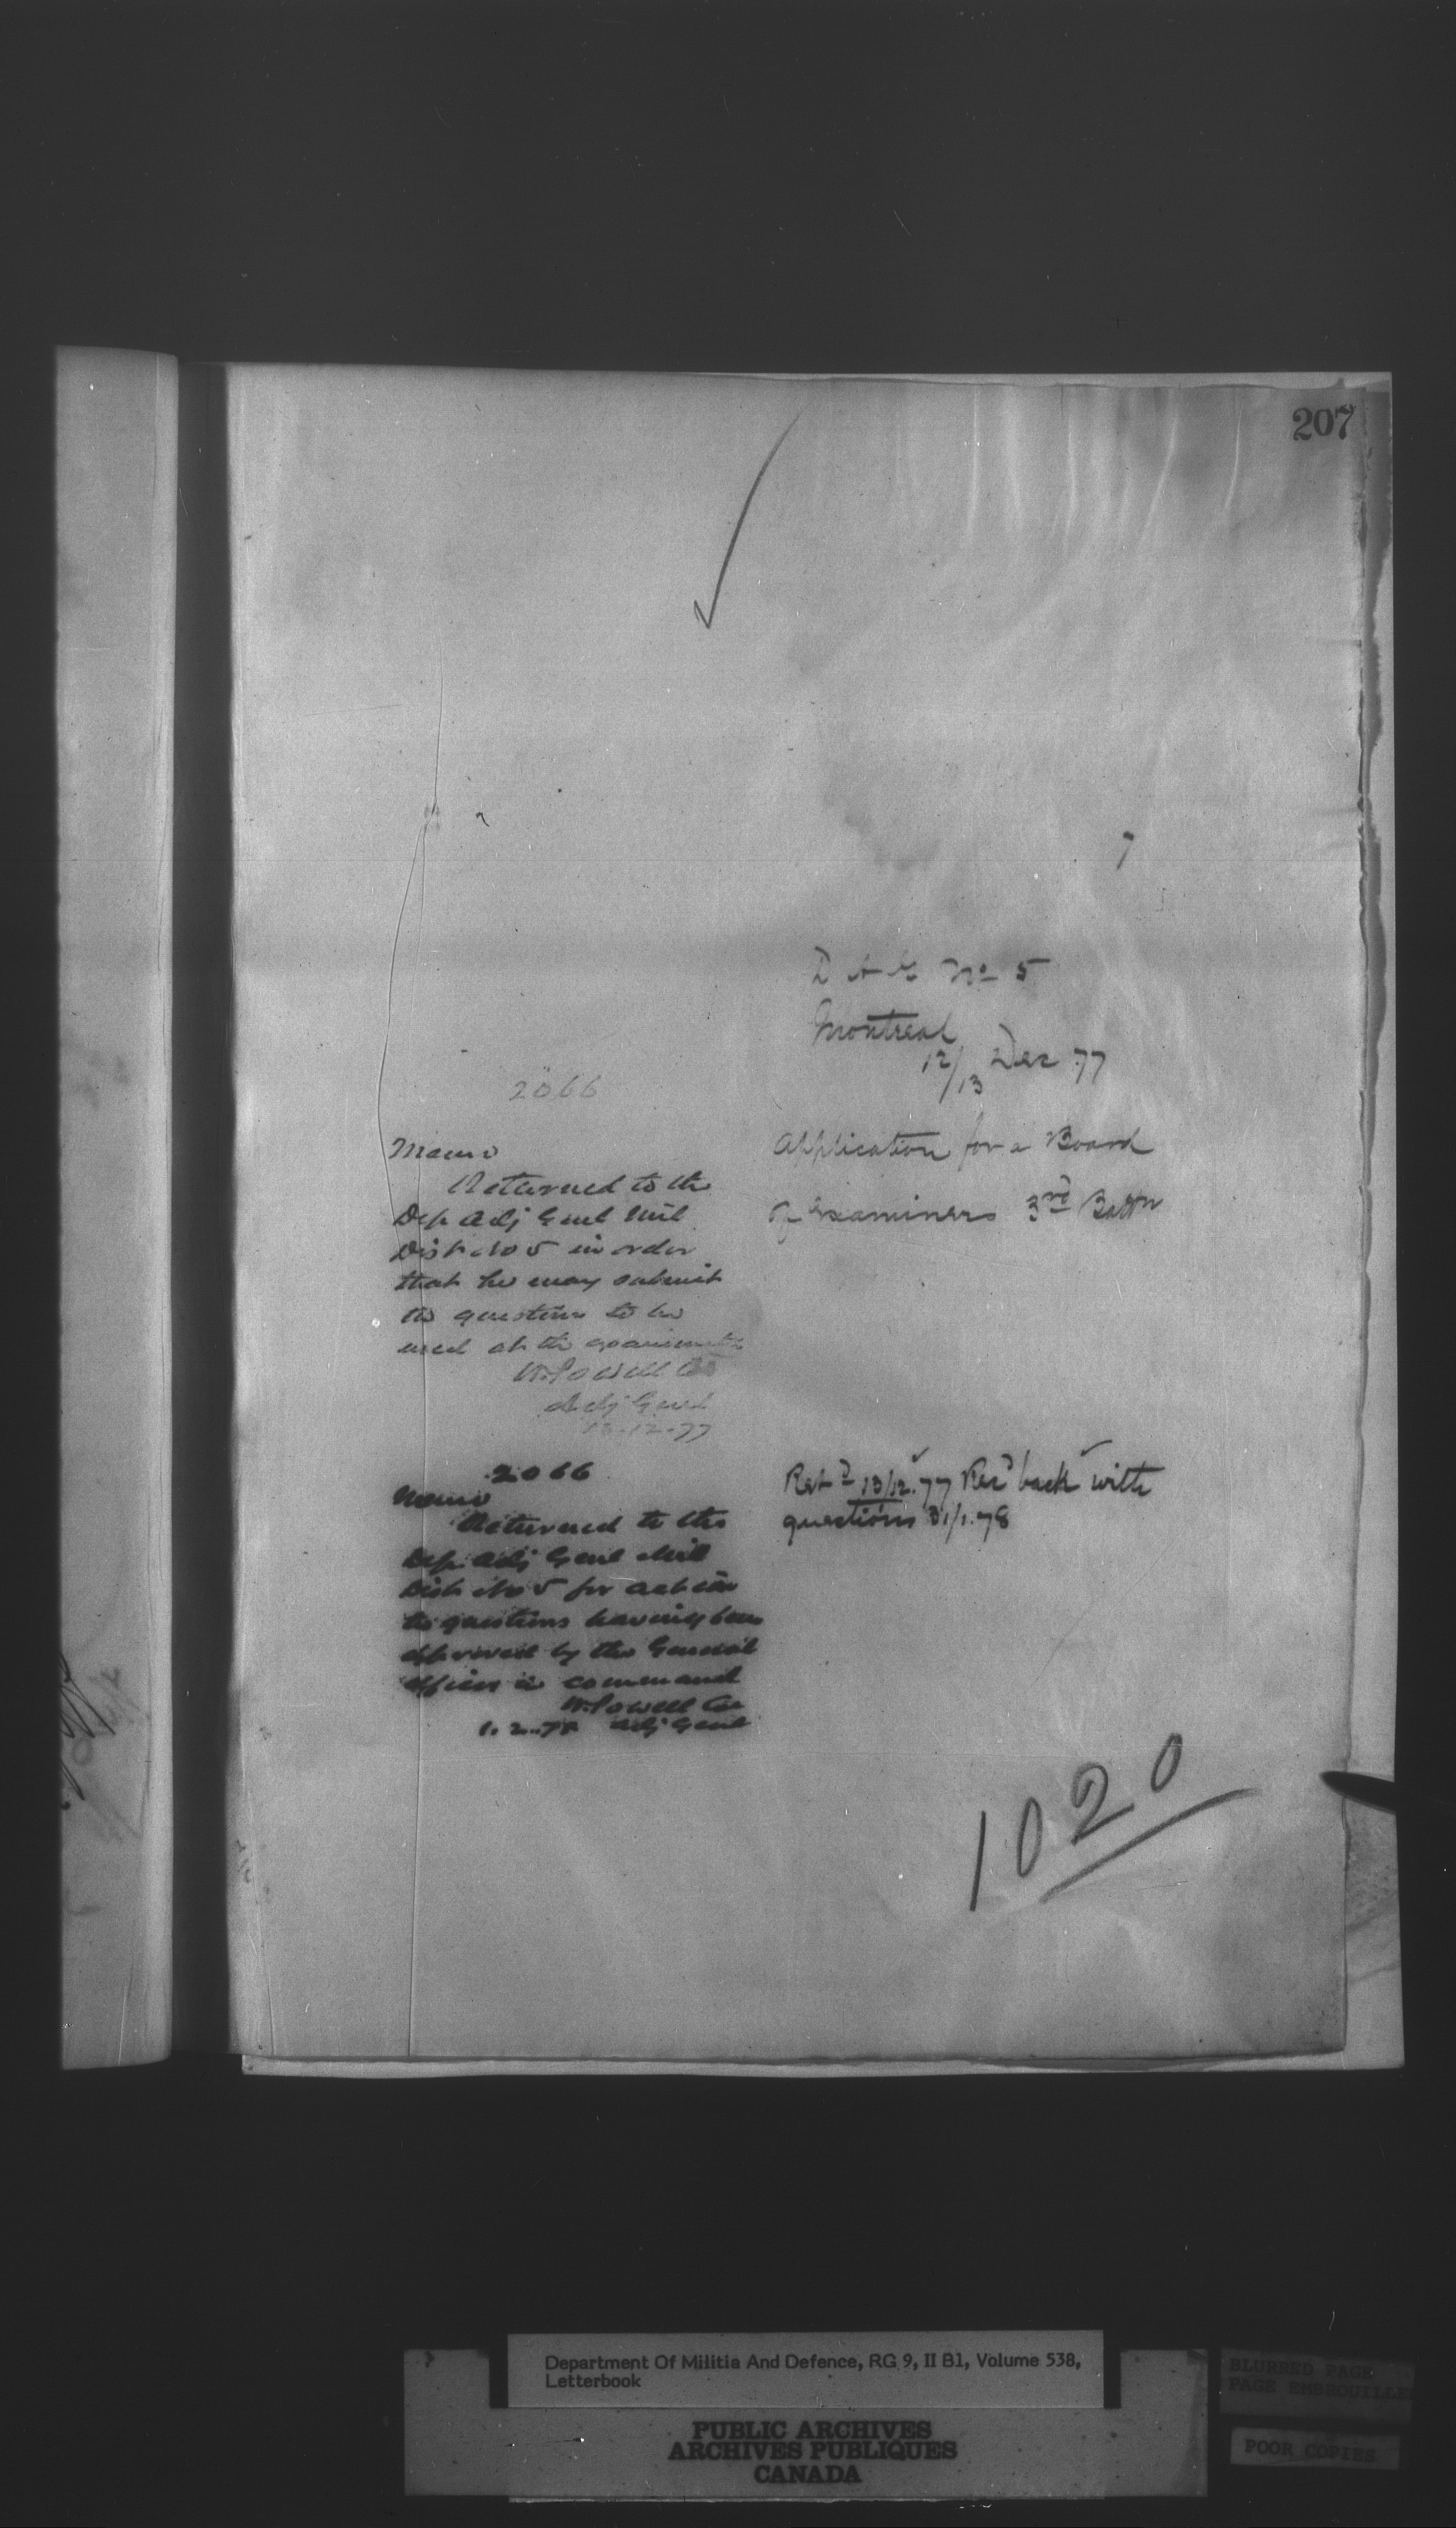 207
D A G No 5
Montreal
12/13 Dec 77
Application for a Board
of Examiners 3rd Battn
2066
Memo
Returned to the
Dep Adj Genl Mil
Dist No 5 in order
that he may submit
the questions to be
used at the
W. Powell Col
Adj Genl
13-12-77
2066
Memo
Returned to the
Dep. Adj Genl Mil
Dist No 5 for action
the questions having been
approved by the General
Officer in command
W. Powell Col
1. 2. 78 Adj Genl
Retd 13/12.77 Recd back with
questions 31/1.78
1020
Department Of Militia And Defence, RG 9, II B1, Volume 538,
Letterbook
PUBLIC ARCHIVES
ARCHIVES PUBLIQUES
CANADA
BLURRED PAGE
PAGE EMBROUILLE
POOR COPIES